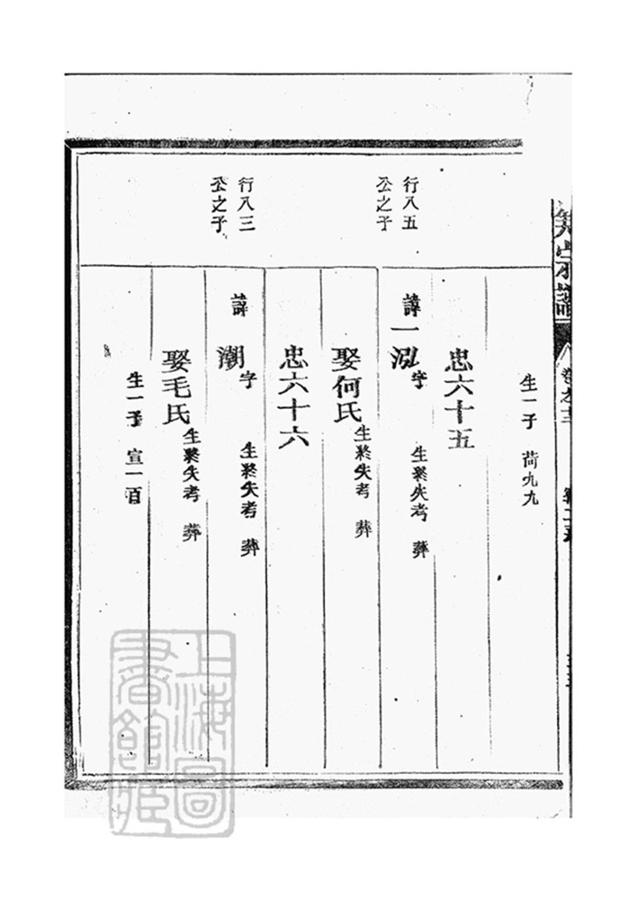 生一子 荷九九
行八五
公之子
忠六十五
諱一泓字 生終失考 葬
娶何氏生終失考 葬
行八三
公之子
忠六十六
諱潮字 生終失考 葬
娶毛氏生終失考 葬
生一子 宣一百
上海圖
書館藏